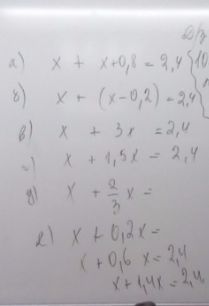 D/з
а) x + x+0,8 = 2,4
б) x + (x-0,2) = 2,4
в) x + 3x = 2,4
г) x + 1,5x = 2,4
д) x + 2/3 x =
е) x + 0,2x =
x + 0,6 x = 2,4
x + 1,4x = 2,4